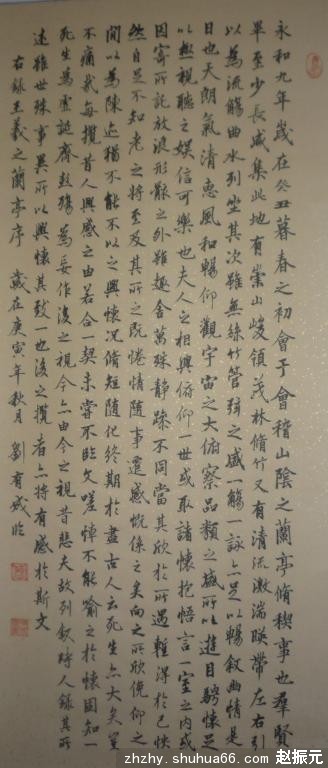 永和九年歲在癸丑暮春之初會于會稽山陰之蘭亭脩稧事也羣賢
畢至少長咸集此地有崇山峻領茂林脩竹又有清流激湍暎帶左右引
以為流觴曲水列坐其次雖無絲竹管弦之盛一觴一詠亦足以暢敘幽情是
日也天朗氣清惠風和暢仰觀宇宙之大俯察品類之盛所以遊目騁懷足
以極視聽之娛信可樂也夫人之相與俯仰一世或取諸懷抱悟言一室之內或
因寄所託放浪形骸之外雖趣舍萬殊靜躁不同當其欣於所遇暫得於己快
然自足不知老之將至及其所之既惓情隨事遷感慨係之矣向之所欣俛仰之
間以為陳迹猶不能不以之興懷況脩短隨化終期於盡古人云死生亦大矣豈
不痛哉每攬昔人興感之由若合一契未嘗不臨文嗟悼不能喻之於懷固知一
死生為虛誕齊彭殤為妄作後之視今亦由今之視昔悲夫故列敘時人錄其所
述雖世殊事異所以興懷其致一也後之攬者亦將有感於斯文
右錄王羲之蘭亭序 歲在庚寅年秋月 劉有盛臨
zhzhy.shuhua66.com 赵振元